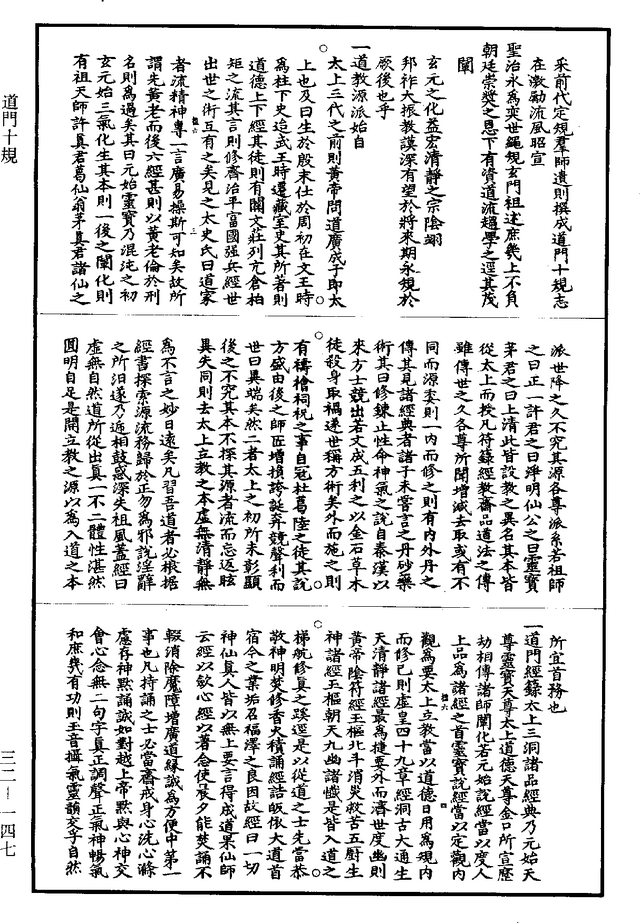 道門十規
三二—一四七
采前代定規羣師遺則撰成道門十規志
在激勵流風昭宣
聖治永為奕世繩規玄門祖述庶幾上不負
朝廷崇獎之恩下有資道流趨學之逕其茂
闡
玄元之化益宏清靜之宗陰翊
邦祚大振教謨深有望於將來期永規於
厥後也乎
一道教源派始自
太上三代之前則黃帝問道廣成子即太
上也及曰生於殷末仕於周初在文王時
為柱下史迨武王時遷藏室史其所著則
道德上下經其徒則有關文莊列亢倉柏
矩之流其言則修齊治平富國強兵經世
出世之術互有之矣見之太史氏曰道家
者流精神專一言廣易操斯可知矣故所
謂先黃老而後六經甚則以黃老倫於刑
名則為過矣其曰元始靈寶乃混沌之初
玄元始三氣化生其本則一後之闡化則
有祖天師許真君葛仙翁茅真君諸仙之
派世降之久不究其源各尊派系若祖師
之曰正一許君之曰淨明仙公之曰靈寶
茅君之曰上清此皆設教之異名其本皆
從太上而授凡符籙經教齋品道法之傳
雖傳世之久各尊所聞增減去取或有不
同而源委則一內而修之則有內外丹之
傳其見諸經典者諸子未嘗言之丹砂藥
術其曰修鍊止性命神氣之說自秦漢以
來方士競出若文成五利之以金石草木
徒殺身取禍遂世稱方術矣外而施之則
有禱檜祠祝之事自冦杜葛陸之徒其說
方盛由後之師匠增損誇誕奔競聲利而
世曰異端矣然二者太上之初所未彰顯
後之不究其本不探其源者流而忘返眩
異失同則去太上立教之本虛無清靜無
為不言之妙日遠矣凡習吾道者必根據
經書探索源流務歸於正勿為邪說淫辭
之所汩遂乃迭相鼓惑深失祖風蓋經曰
虛無自然道所從出真一不二體性湛然
圓明自足是開立教之源以為入道之本
所宜首務也
一道門經籙太上三洞諸品經典乃元始天
尊靈寶天尊太上道德天尊金口所宣歷
劫相傳諸師闡化若元始說經當以度人
上品為諸經之首靈寶說經當以定觀內
觀為要太上立教當以道德日用為規內
而修己則虛皇四十九章經洞古大通生
天清靜諸經最為捷要外而濟世度幽則
黃帝陰符經玉樞北斗消災救苦五廚生
神諸經玉樞朝天九幽諸懺是皆入道之
梯航修真之蹊逕是以從道之士先當恭
敬神明焚修香火積誦經誥皈依大道首
宿令之業垢召福澤之良因故經曰一切
神仙真人皆以無上要言得成道果仙師
云經以歛心經以著念使晨夕能焚誦不
輟消除魔障增廣道緣誠為方便中第一
事也凡持誦之士必當齋戒身心洗心滌
慮存神默誦誠如對越上帝默與心神交
會心念無二句字真正調聲正氣神暢氣
和庶幾有功則玉音攝氣靈韻交孚自然